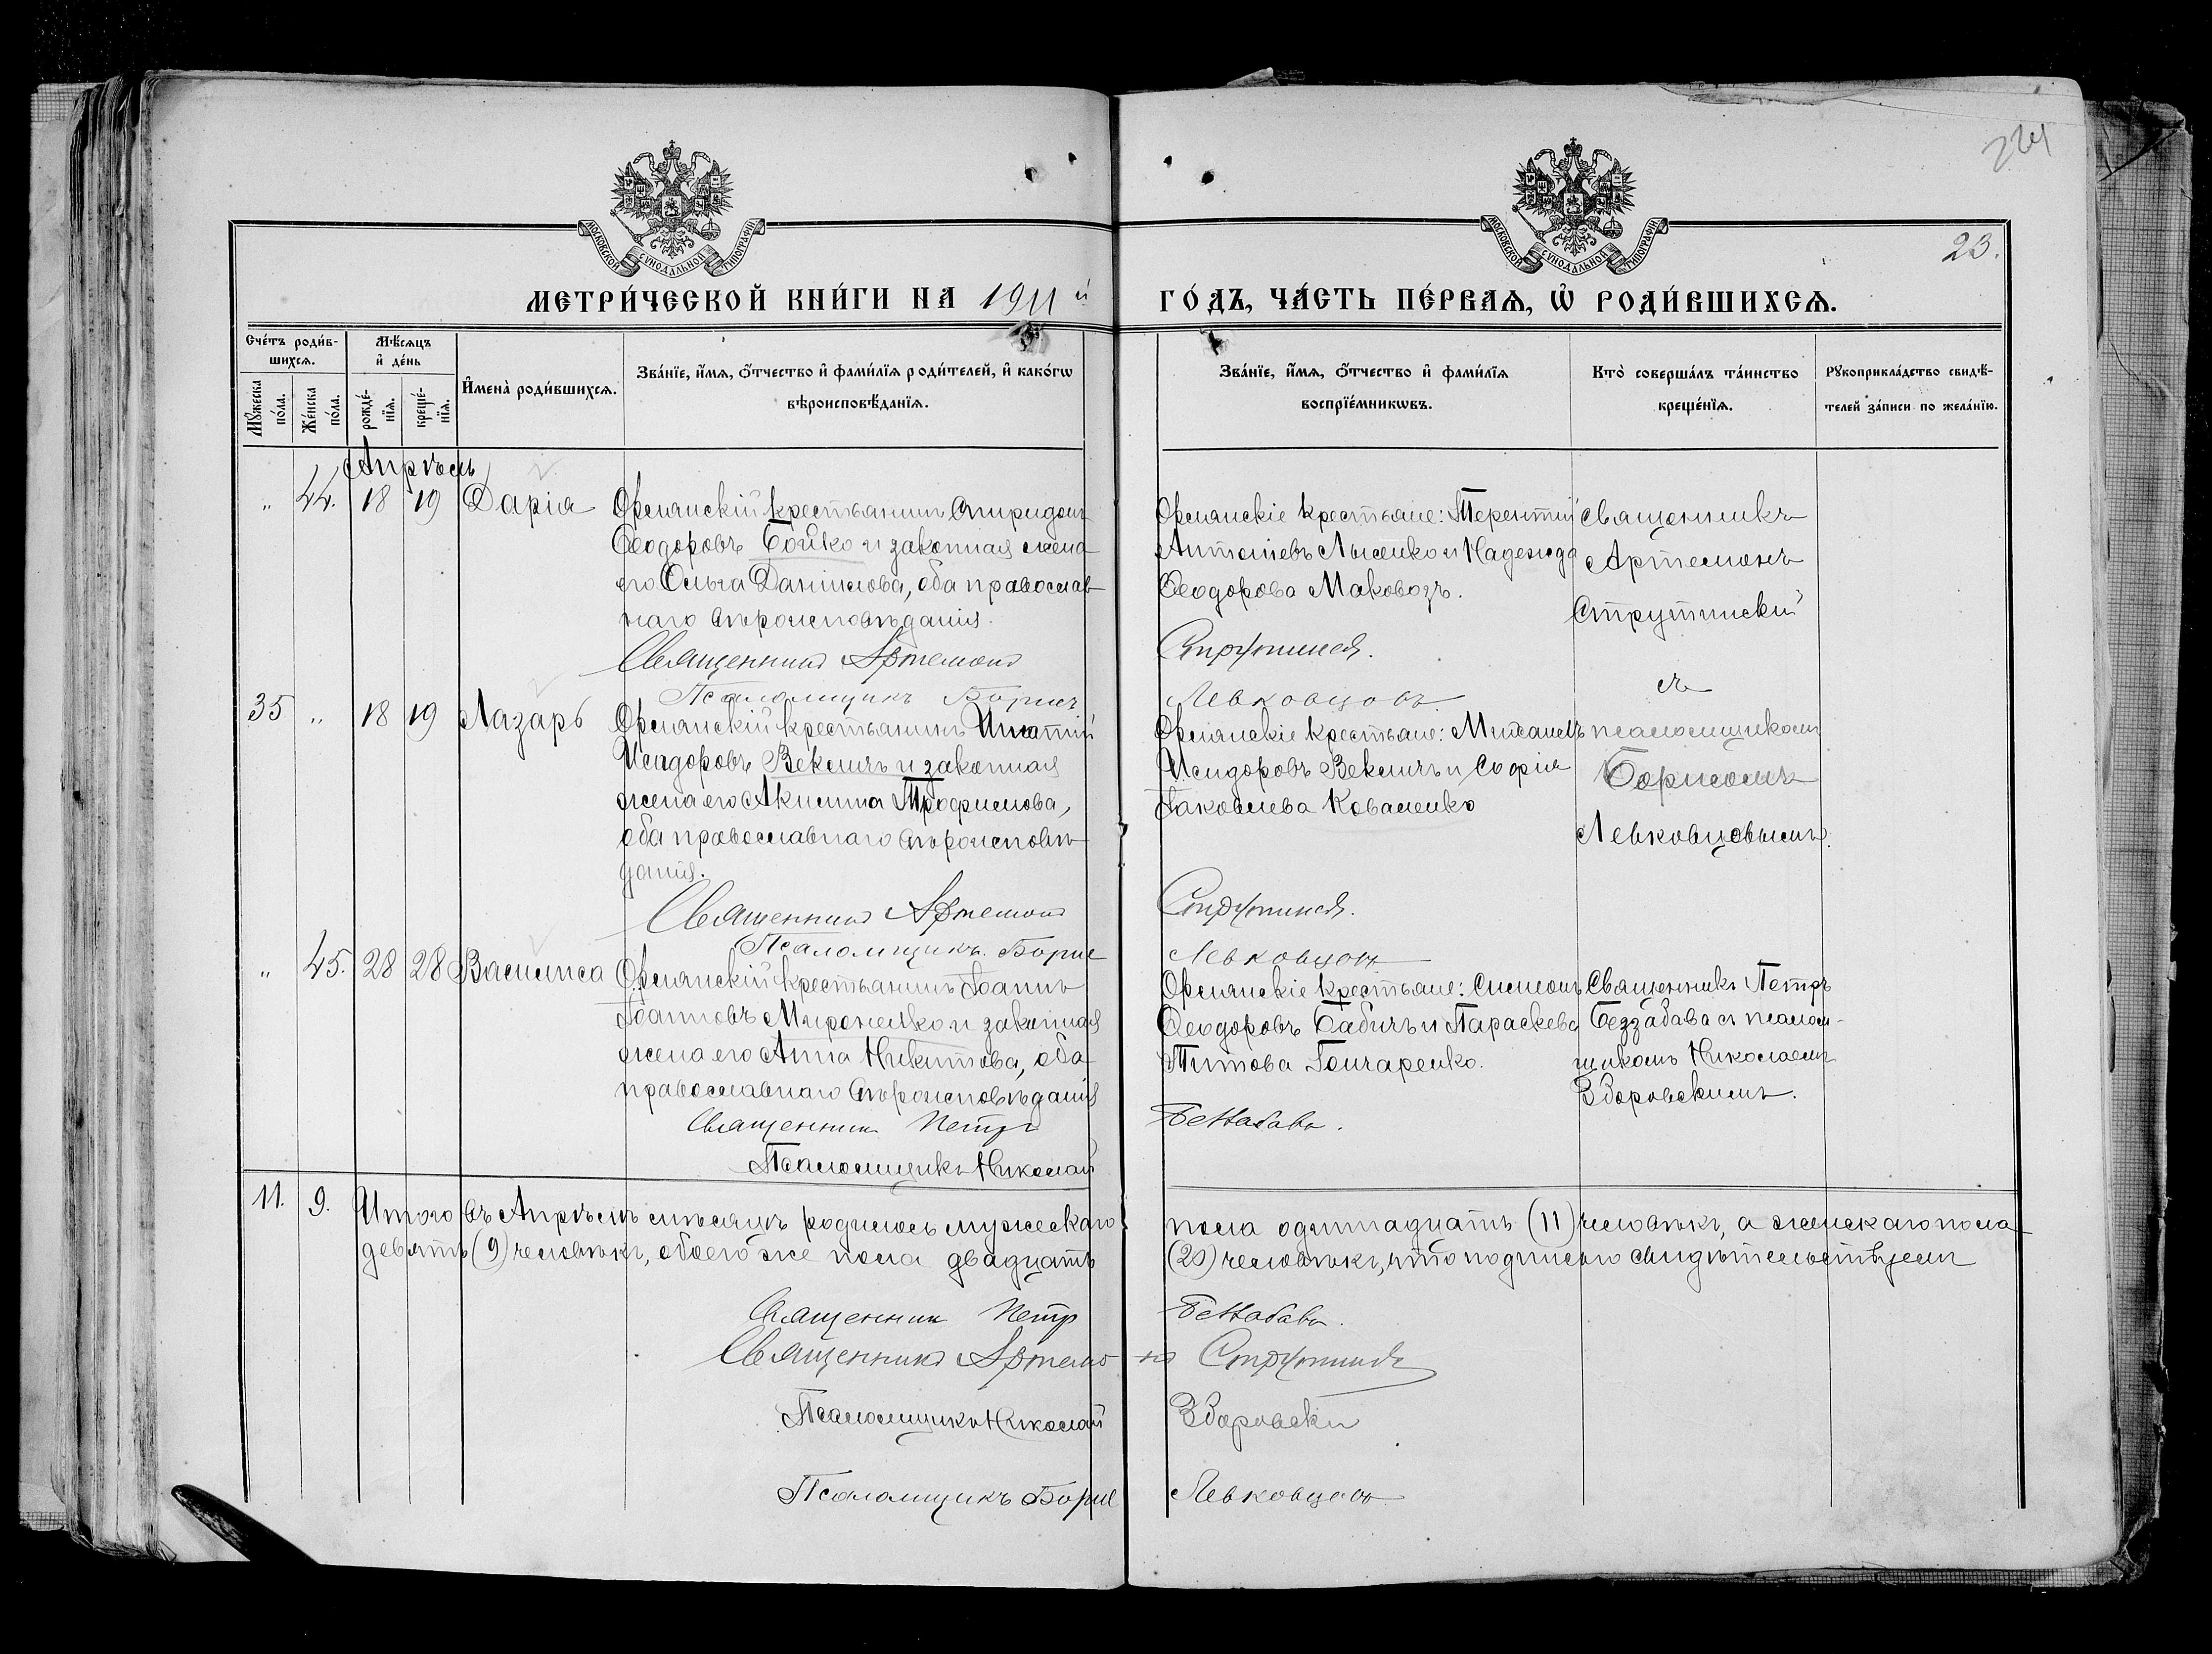 224
23.
МОСКОВСКОЙ СѴНОДАЛЬНОЙ ТИПОГРАФІИ
МОСКОВСКОЙ СѴНОДАЛЬНОЙ ТИПОГРАФІИ
МЕТРИ́ЧЕСКОЙ КНИ́ГИ НА 1911 й ГО́ДЪ, ЧА́СТЬ ПЕ́РВАѦ, Ѡ҆ РОДИ́ВШИХСѦ.
Сче́тъ роди́в-
шихсѧ.
Мѣ́сѧцъ
и҆ де́нь
Мꙋ́жеска
по́ла.
Же́нска
по́ла.
рожде́-
нїѧ.
креще́-
нїѧ.
И҆мена̀ роди́вшихсѧ.
Зва́нїе, и҆́мѧ, ѻ҆́тчество и҆ фами́лїѧ роди́телей, и҆ како́гѡ
вѣроисповѣ́данїѧ.
Зва́нїе, и҆́мѧ, ѻ҆́тчество и҆ фами́лїѧ
воспрїе́мникѡвъ.
Кто̀ соверша́лъ та́инство
креще́нїѧ.
Рꙋкоприкла́дство свидѣ́-
телей за́писи по жела́нїю.
Апрѣль
" 44. 18 19 Дарія
крестьянинъ Спиридонъ
Ѳеодоровъ Бойко и законная жена
его Ольга Даніилова, оба православ
наго вѣроисповѣданія.
Священникъ Артемонъ
Псаломщикъ Борисъ
крестьяне: Терентій
Лысенко и Надежда
Ѳеодорова Маковозъ.
Струтинскій.
Левковцовъ
Священникъ
Артемонъ
Струтинскій
съ
псаломщикомъ
Борисомъ
Левковцовымъ.
35 " 18 19 Лазарь
крестьянинъ Игнатій
Исидоровъ Векличъ и законная
жена его Акилина Трофимова,
оба православнаго вѣроисповѣ
данія.
Священникъ Артемонъ
Псаломщикъ Борисъ
крестьяне: Михаилъ
Исидоровъ Векличъ и Софія
Іаковлева Коваленко
Струтинскій.
Левковцовъ
" 45. 28 28 Василиса
крестьянинъ Іоаннъ
Іоанновъ Мироненко и законная
жена его Анна Никитова, оба
православнаго вѣроисповѣданія
Священникъ Петръ
Псаломщикъ Николай
крестьяне: Симеонъ
Ѳеодоровъ Бабичъ и Параскева
Титова Гончаренко.
Беззабава.
Священникъ Петръ
Беззабава съ псалом-
щикомъ Николаемъ
Здоровскимъ.
11. 9. Итого въ Апрѣлѣ мѣсяцѣ родилось мужескаго пола одинадцать (11) человѣкъ, а женскаго пола
девять (9) человѣкъ, обоего же пола двадцать (20) человѣкъ, что подписью свидѣтельствуемъ
Священникъ Петръ Беззабава.
Священникъ Артемонъ Струтинскій
Псаломщикъ Николай Здоровскій
Псаломщикъ Борисъ Левковцовъ